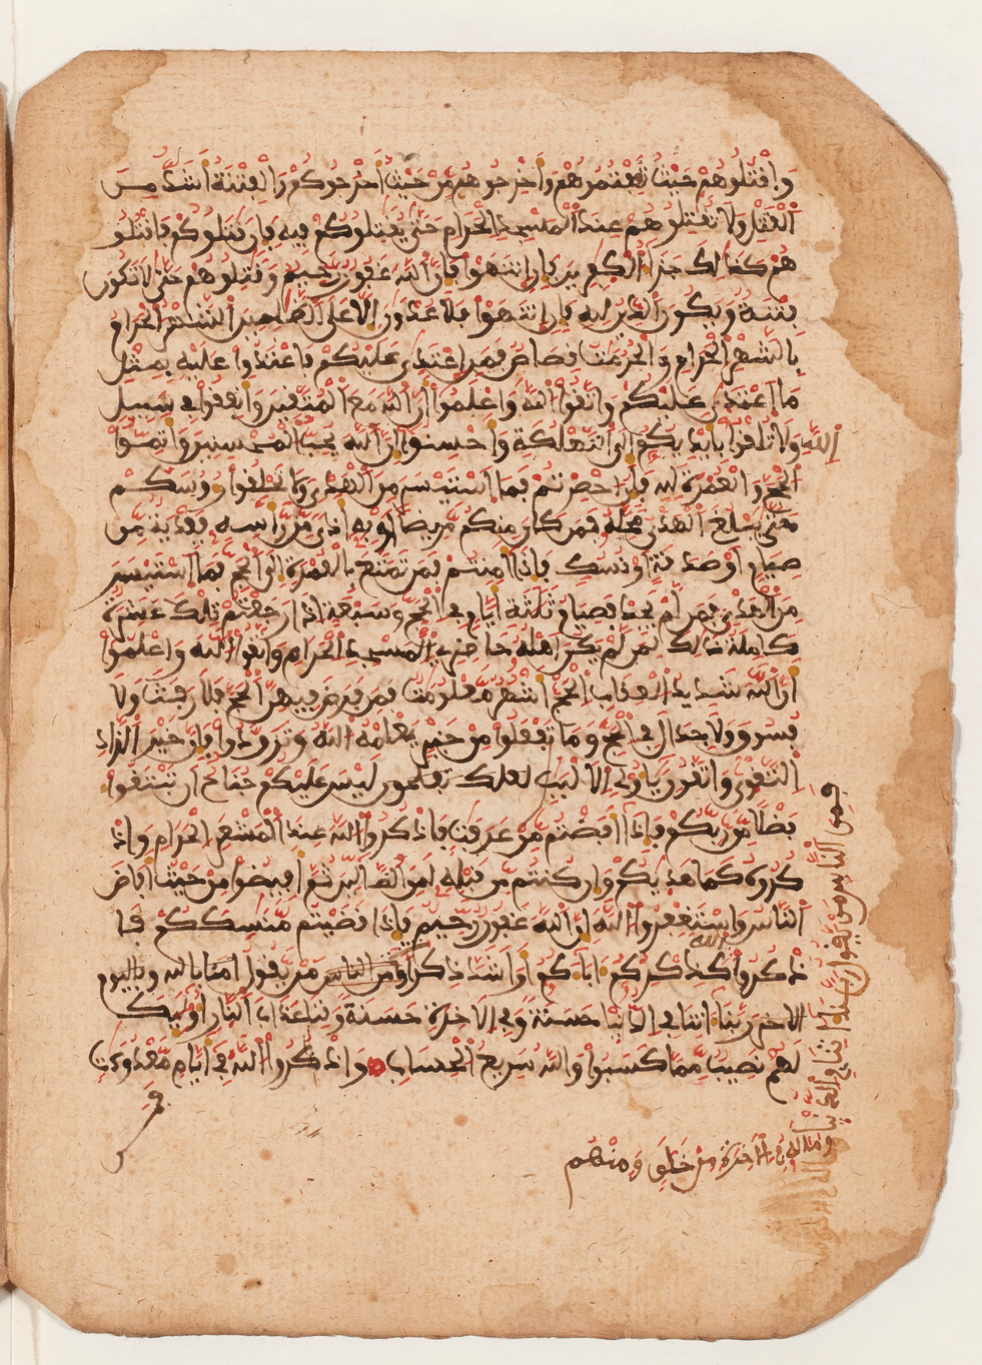 واقتلوهم حيث ثقفتموهم وأخرجوهم من حيث أخرجوكم والفتنة أشد من
القتل ولا تقتلوهم عند المسجد الحرام حتى يقتلوكم فيه فإن قتلوكم فاقتلو
هم كذالك جزاء الكفرين فإن انتهوا فإن الله غفور رحيم وقتلوهم حتى لا تكون
فتنة ويكون الدين لله فإن انتهوا فلا عدون إلا على الظلمين الشهر الحرام
بالشهر الحرام والحرمت قصاص فمن اعتدى عليكم فاعتدوا عليه بمثل
ما اعتدى عليكم واتقوا الله واعلموا أن الله مع المتقين وأنفقوا في سبيل
الله ولا تلقوا بأيديكم إلى التهلكة وأحسنوا إن الله يحب المحسنين وأتموا
الحج والعمرة لله فإن أحصرتم فما استيسر من الهدي ولا تحلقوا رءوسكم
حتى يبلغ الهدي محله فمن كان منكم مريضا أو به أذى من رأسه ففدية من
صيام أو صدقة أو نسك فإذا أمنتم فمن تمتع بالعمرة إلى الحج فما استيسر
من الهدي فمن لم يجد فصيام ثلثة أيام في الحج وسبعة إذا رجعتم تلك عشرة
كاملة ذالك لمن لم يكن أهله حاضري المسجد الحرام واتقوا الله واعلموا
أن الله شديد العقاب الحج أشهر معلومت فمن فرض فيهن الحج فلا رفث ولا
فسوق ولا جدال في الحج وما تفعلوا من خير يعلمه الله وتزودوا فإن خير الزاد
التقوى واتقون يأولي الألبب لعلك تفلحون ليس عليكم جناح أن تبتغوا
فضلا من ربكم فإذا أفضتم من عرفت فاذكروا الله عند المشعر الحرام واذ
كروه كما هديكم وإن كنتم من قبله لمن الضالين ثم أفيضوا من حيث أفاض
الناس واستغفروا الله إن الله غفور رحيم فإذا قضيتم منسككم فا
ذكروا الله كذكركم اباءكم أو أشد ذكرا فمن الناس من يقول امنا بالله وباليوم
الاخر ربنا اتنا في الدنيا حسنة وفي الاخرة حسنة وقنا عذاب النار أوليك
لهم نصيب مما كسبوا والله سريع الحساب واذكروا الله في أيام معدودت
فمن
فمن الناس من يقول ربنا اتنا في الدنيا
وما له في الاخرة من خلق ومنهم